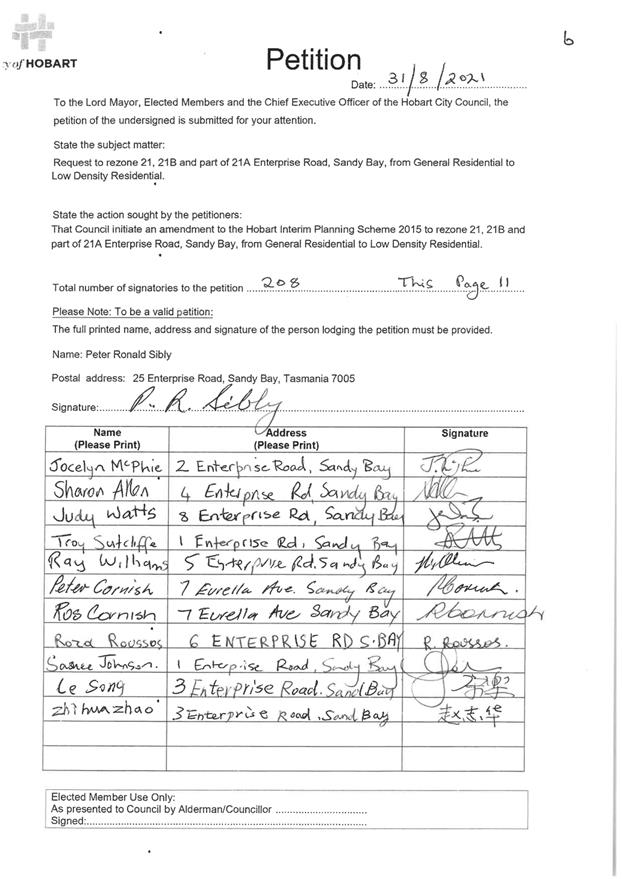 6
y of HOBART
Petition
Date: 31/8/2021
To the Lord Mayor, Elected Members and the Chief Executive Officer of the Hobart City Council, the
petition of the undersigned is submitted for your attention.
State the subject matter:
Request to rezone 21, 21B and part of 21A Enterprise Road, Sandy Bay, from General Residential to
Low Density Residential.
State the action sought by the petitioners:
That Council initiate an amendment to the Hobart Interim Planning Scheme 2015 to rezone 21, 21B and
part of 21A Enterprise Road, Sandy Bay, from General Residential to Low Density Residential.
Total number of signatories to the petition ....208.... This Page 11
Please Note: To be a valid petition:
The full printed name, address and signature of the person lodging the petition must be provided.
Name: Peter Ronald Sibly
Postal address: 25 Enterprise Road, Sandy Bay, Tasmania 7005
Signature: P. R. Sibly
Name (Please Print) Address (Please Print) Signature
Jocelyn McPhie 2 Enterprise Road, Sandy Bay
Sharon Allen 4 Enterprise Rd, Sandy Bay
Judy Watts 8 Enterprise Rd, Sandy Bay
Troy Sutcliffe 1 Enterprise Rd, Sandy Bay
Ray Williams 5 Enterprise Rd. Sandy Bay
Peter Cornish 7 Eurella Ave. Sandy Bay
Ros Cornish 7 Eurella Ave Sandy Bay RCornish
Roussos 6 ENTERPRISE RD S.BAY R. Roussos.
Johnson. 1 Enterprise Road, Sandy Bay
Le Song 3 Enterprise Road. Sand Bay
zhihuazhao 3 Enterprise Road, Sand Bay 赵志华
Elected Member Use Only:
As presented to Council by Alderman/Councillor ..............................
Signed:..............................